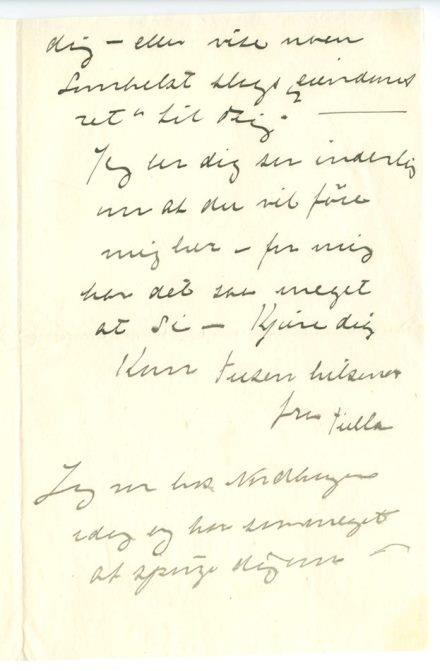 dig – eller vise noen
somhelst slags „eiendoms
ret“ til Dig. —
Jeg ber dig saa inderlig
om at du vil føie
mig her – for mig
har det saa meget
at si – Kjære dig
Kun tusen hilsener
fra Tulla
Jeg var hos Nordhagen
idag og har saa meget
at spørge dig om –